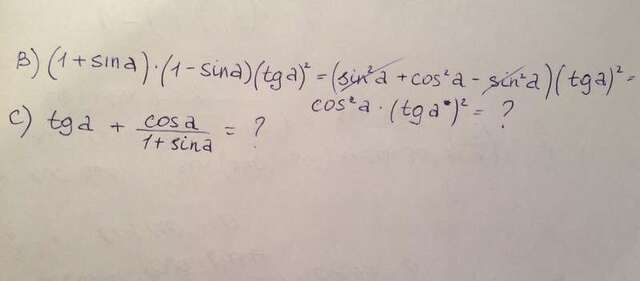 B) (1+sina)·(1-sina)(tga)² = (sin²a + cos²a - sin²a)(tga)² =
cos²a · (tga)² = ?
C) tga + cosa/1+sina = ?